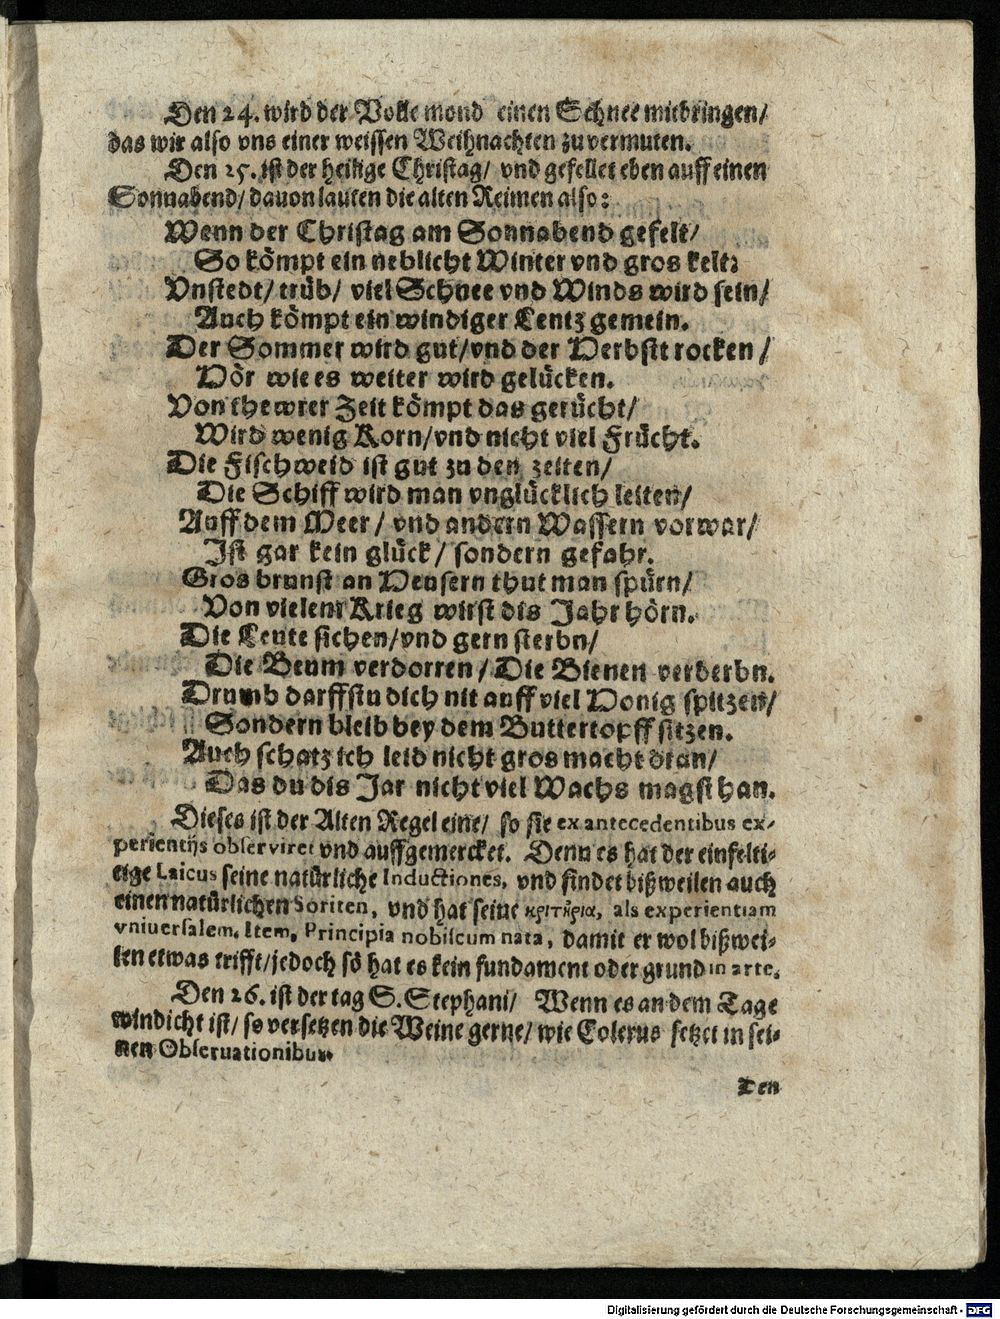 Den 24. wird der Volle mond einen Schnee mitbringen/
das wir also vns einer weissen Weihnachten zuvermuten.
Den 25. ist der heilige Christag/ vnd gefellet eben auff einen
Sonnabend/ dauon lauten die alten Reimen also:
Wenn der Christag am Sonnabend gefelt/
So kömpt ein neblicht Winter vnd gros kelt:
Vnstedt/ trüb/ viel Schnee vnd Winds wird sein/
Auch kömpt ein windiger Lentz gemein.
Der Sommer wird gut/ vnd der Herbsit rocken/
Hör wie es weiter wird gelücken.
Von thewrer Zeit kömpt das gerücht/
Wird wenig Korn/ vnd nicht viel Frücht.
Die Fischweid ist gut zu den zeiten/
Die Schiff wird man vnglücklich leiten/
Auff dem Meer/ vnd andern Wassern vorwar/
Ist gar kein glück/ sondern gefahr.
Gros brunst an Heusern thut man spürn/
Von vielem Krieg wirst dis Jahr hörn.
Die Leute sichen/ vnd gern sterbn/
Die Beum verdorren/ Die Bienen verderbn.
Drumb darffstu dich nit auff viel Honig spitzen/
Sondern bleib bey dem Buttertopff sitzen.
Auch schatz ich leid nicht gros macht dran/
Das du dis Jar nicht viel Wachs magst han.
Dieses ist der Alten Regel eine/ so sie ex antecedentibus ex-
perientijs observiret vnd auffgemercket. Denn es hat der einfelti-
eige Laicus seine natürliche Inductiones, vnd findet bißweilen auch
einen natürlichen Soriten, vnd hat seine κριτήρια, als experientiam
vniuersalem. Item, Principia nobiscum nata, damit er wol bißwei-
len etwas trifft/ jedoch so hat es kein fundament oder grund in arte.
Den 26. ist der tag S. Stephani/ Wenn es an dem Tage
windicht ist/ so versetzen die Weine gerne/ wie Colerus setzet in sei-
nen Obseruationibus.
Den
Digitalisierung gefördert durch die Deutsche Forschungsgemeinschaft - DFG